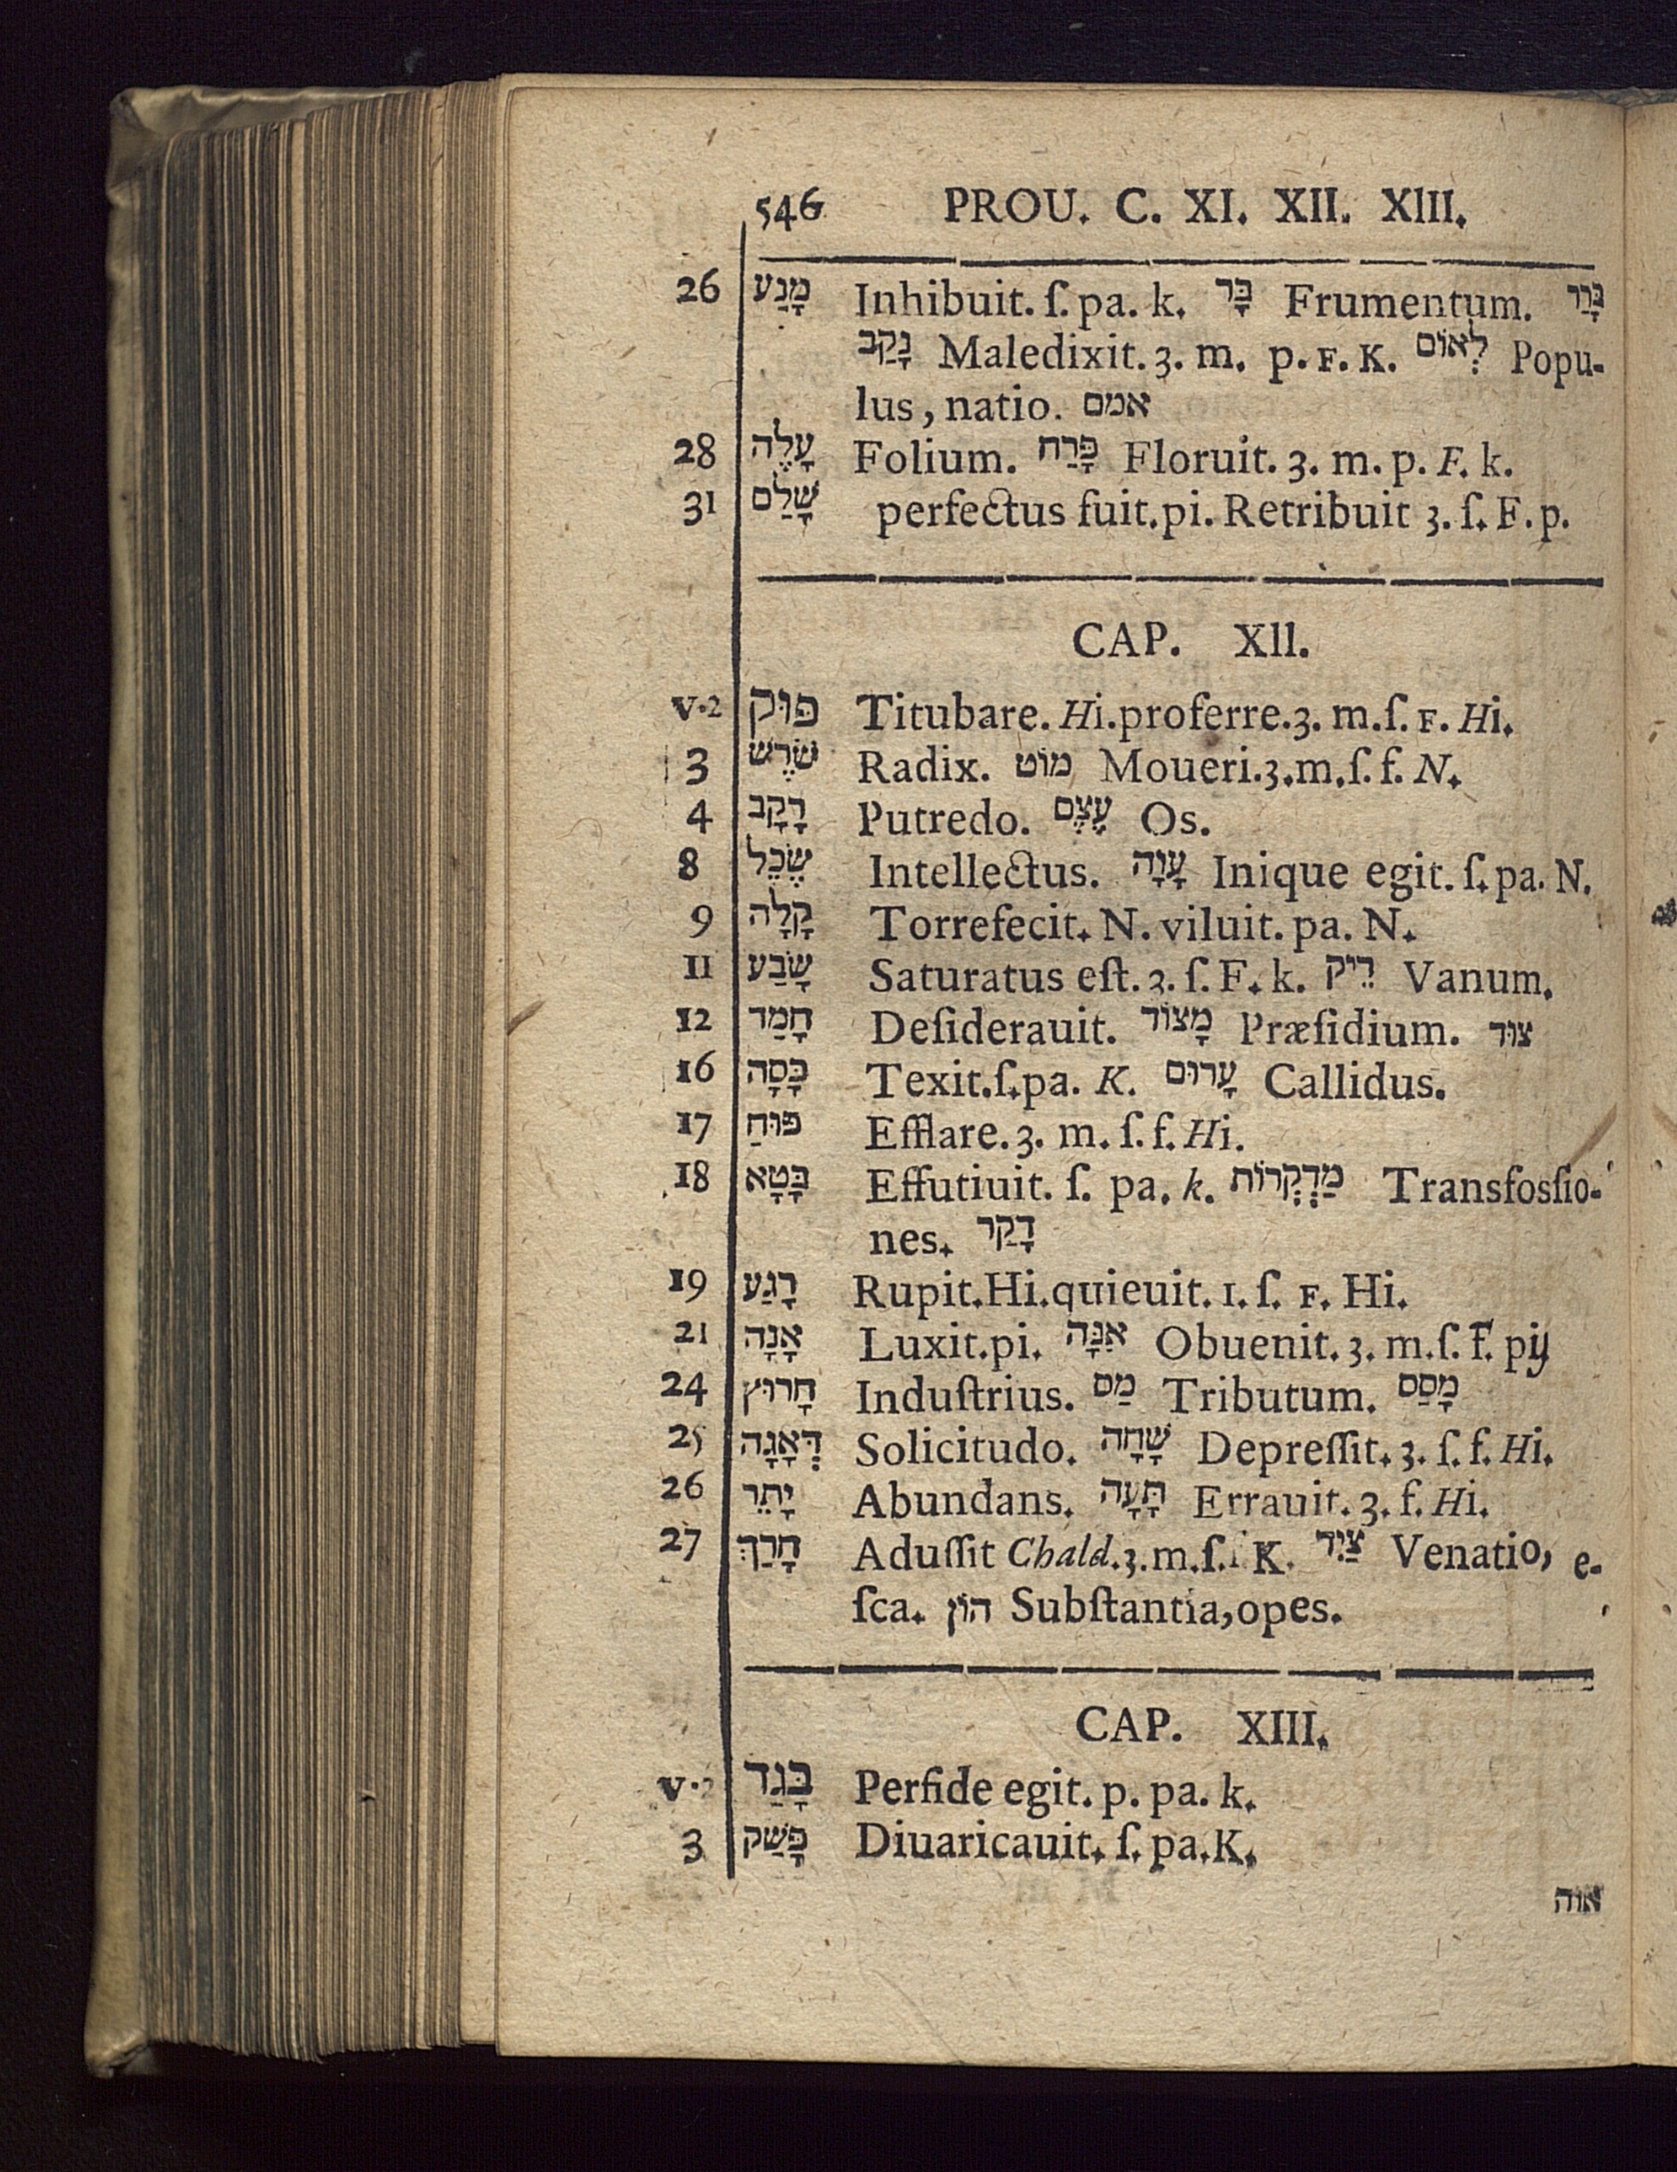 546 PROU. C. XI. XII. XIII.
26 מָנַע Inhibuit. ſ. pa. k. בָּר Frumentum. בָּרַר
נָקַב Maledixit. 3. m. p. F. K. לְאוֹם Popu-
lus, natio. אמם
28 עָלֶה Folium. פָּרַח Floruit. 3. m. p. F. k.
31 שָׁלַם perfectus fuit. pi. Retribuit 3. ſ. F. p.
CAP. XII.
v. 2 פּוּק Titubare. Hi. proferre. 3. m. ſ. F. Hi.
3 שֹׁרֶשׁ Radix. מוֹט Moueri. 3. m. ſ. f. N.
4 רָקָב Putredo. עֶצֶם Os.
8 שֶׂכֶל Intellectus. עָוָה Inique egit. ſ. pa. N.
9 קָלָה Torrefecit. N. viluit. pa. N.
11 שָׂבַע Saturatus eſt. 3. ſ. F. k. רֵיק Vanum.
12 חָמַד Deſiderauit. מָצוֹד Præſidium. צוּד
16 כָּסָה Texit. ſ. pa. K. עָרוּם Callidus.
17 פּוּחַ Efflare. 3. m. ſ. f. Hi.
18 בָּטָא Effutiuit. ſ. pa. k. מַדְקְרוֹת Transfosſio-
nes. דָקַר
19 רָגַע Rupit. Hi. quieuit. 1. ſ. F. Hi.
21 אָנָה Luxit. pi. אִנָּה Obuenit. 3. m. ſ. F. pij
24 חָרוּץ Induſtrius. מַס Tributum. מָסַס
25 דְּאָגָה Solicitudo. שָׁחָה Depreſſit. 3. ſ. f. Hi.
26 יָתֵר Abundans. תָּעָה Errauit. 3. f. Hi.
27 חָרַךְ Aduſſit Chald. 3. m. ſ. K. צַיִד Venatio, e-
ſca. הוֹן Subſtantia, opes.
CAP. XIII.
v. 2 בָּגַד Perfide egit. p. pa. k.
3 פָּשַׂק Diuaricauit. ſ. pa. K.
אוה